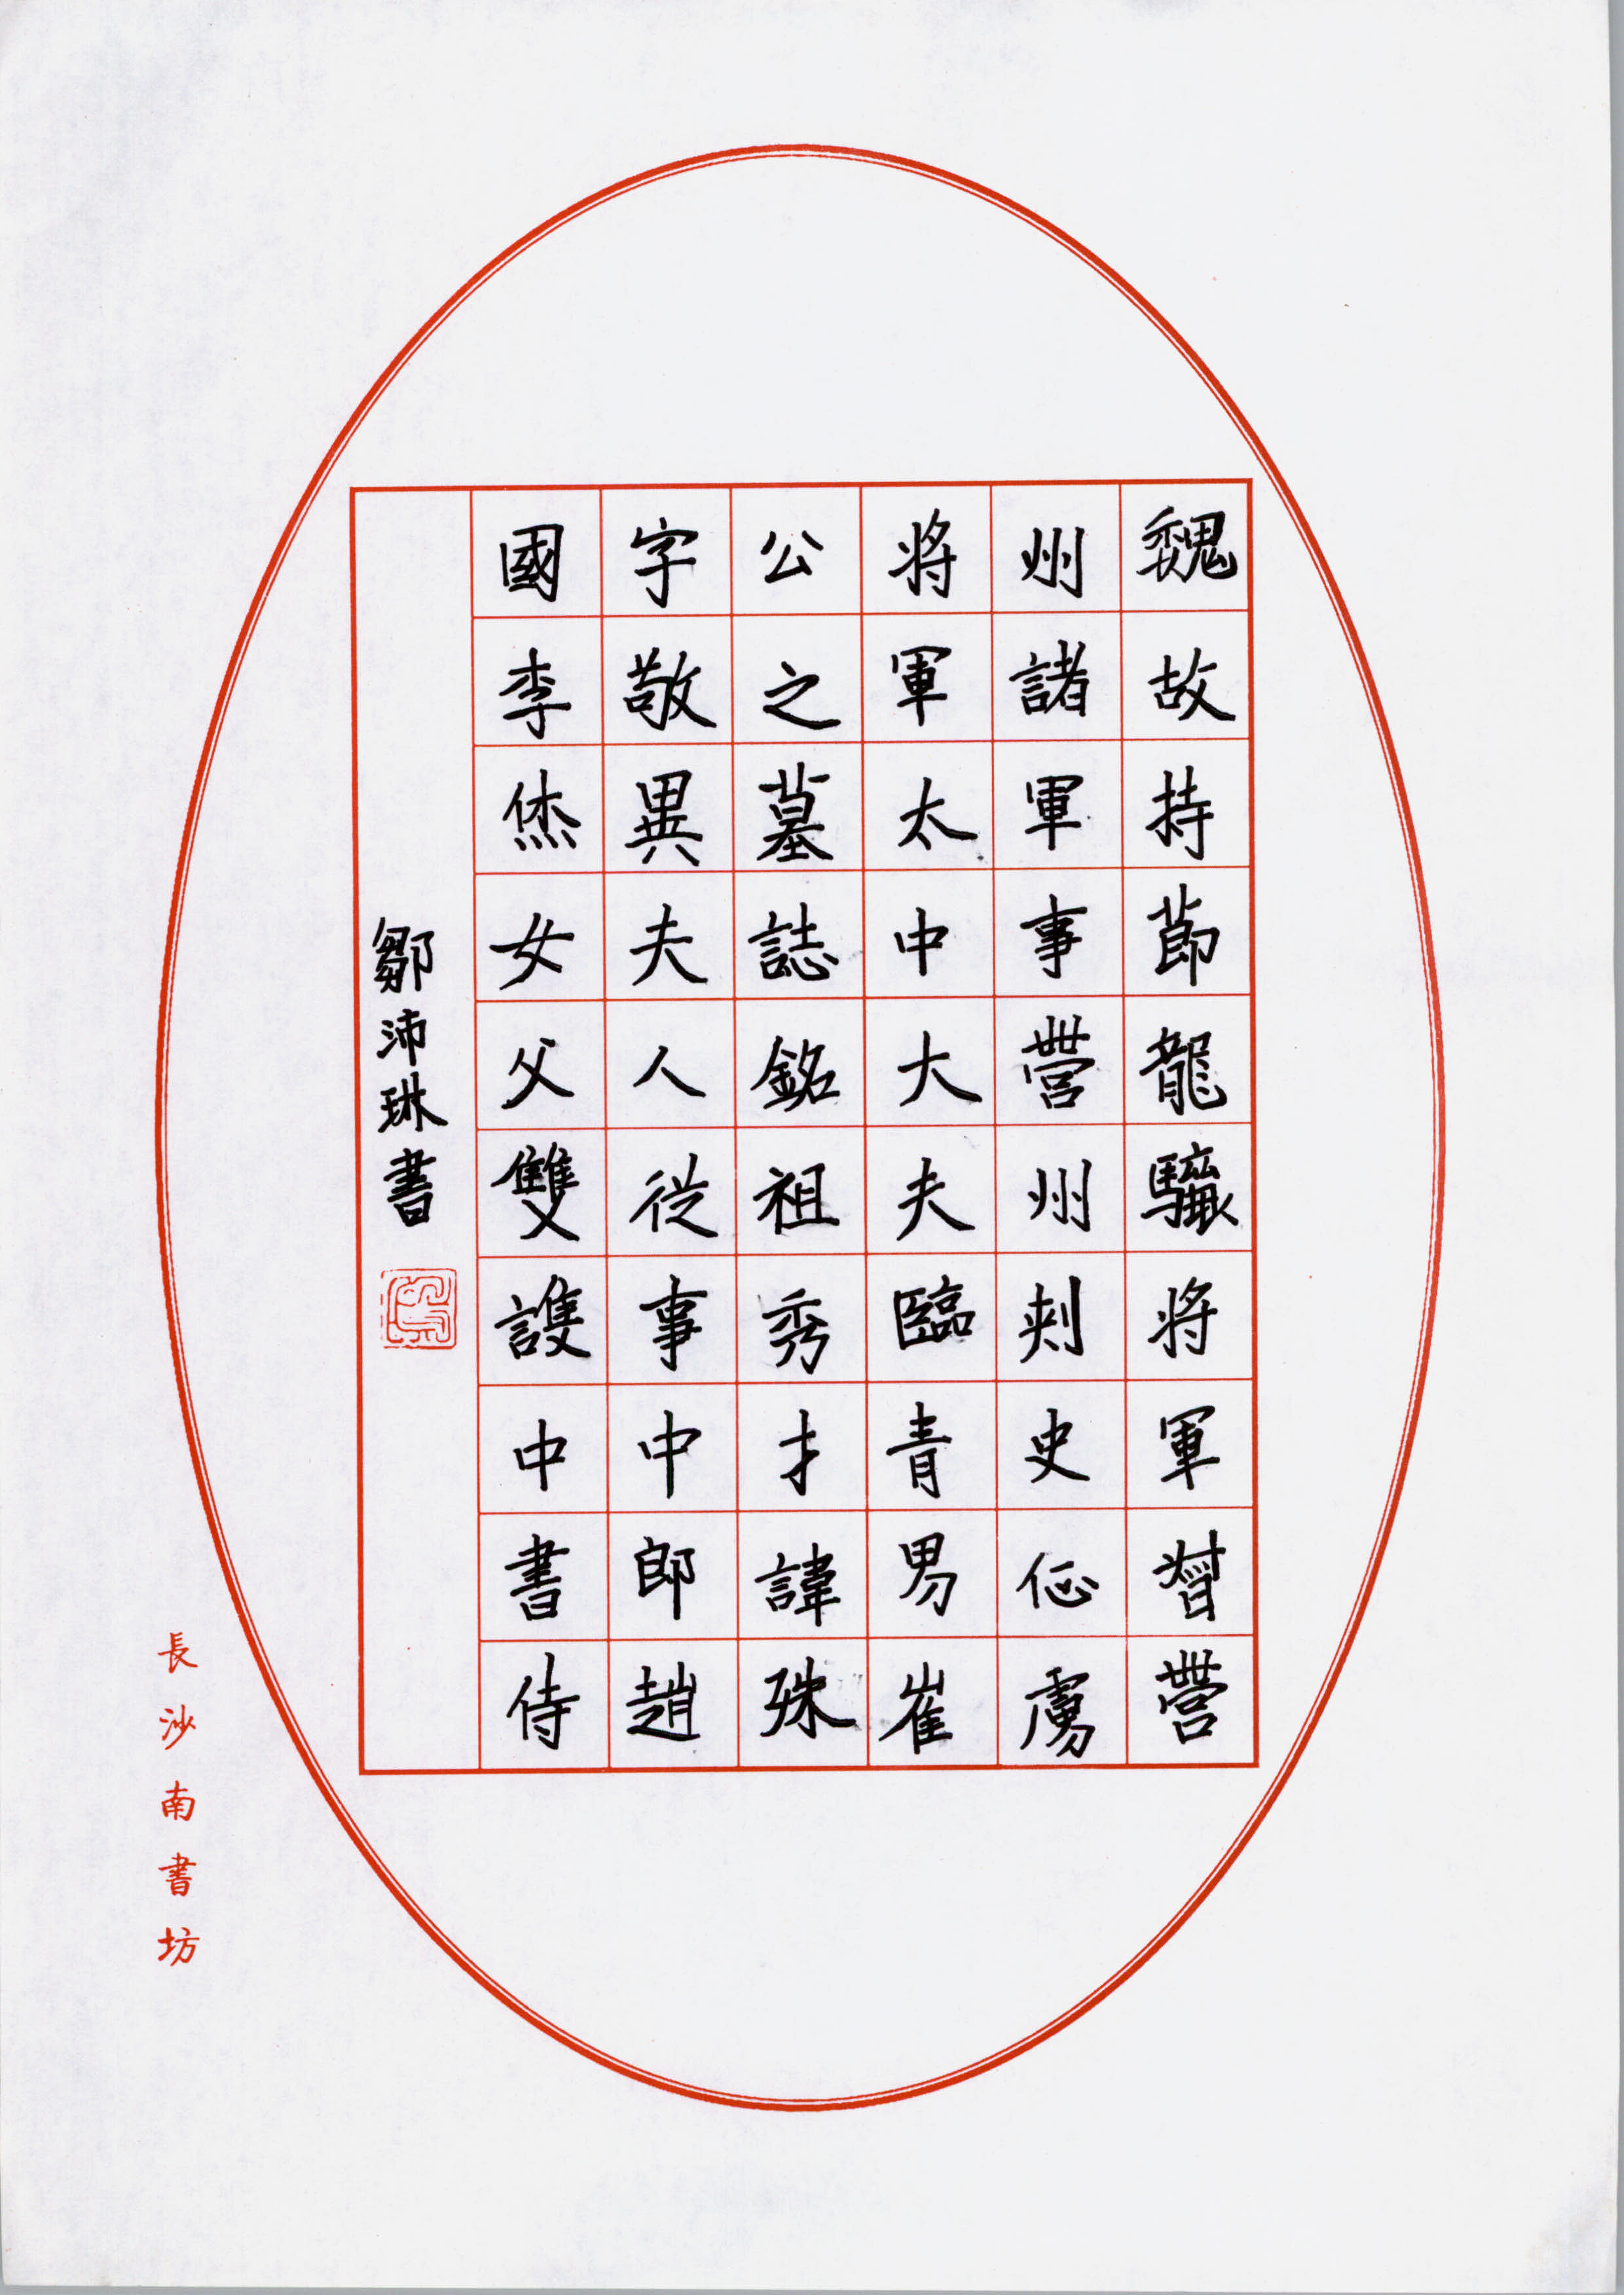 魏故持節龍驤將軍督營
州諸軍事營州刾史征虜
將軍太中大夫臨青男崔
公之墓誌銘祖秀才諱殊
字敬異夫人從事中郎趙
國李烋女父雙護中書侍
鄒沛琳書
長沙南書坊